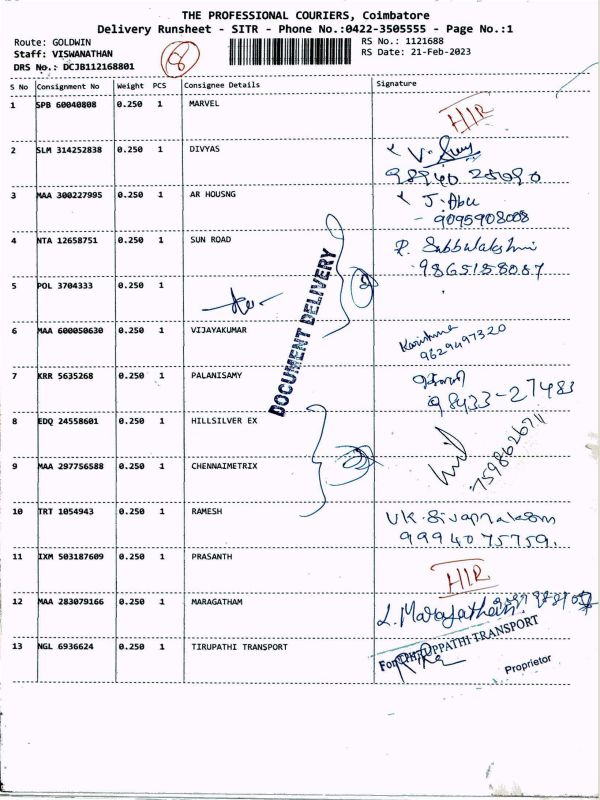 THE PROFESSIONAL COURIERS, Coimbatore
Delivery Runsheet - SITR - Phone No.:0422-3505555 - Page No.:1
Route: GOLDWIN RS No.: 1121688
Staff: VISWANATHAN 8 RS Date: 21-Feb-2023
DRS No.: DCJB112168801
S No Consignment No Weight PCS Consignee Details Signature
1 SPB 60040808 0.250 1 MARVEL
2 SLM 314252838 0.250 1 DIVYAS
3 MAA 300227995 0.250 1 AR HOUSNG J. Abu
9095908008
4 NTA 12658751 0.250 1 SUN ROAD P. Subbulakshmi
9865158087
5 POL 3704333 0.250 1
DOCUMENT DELIVERY
6 MAA 600050630 0.250 1 VIJAYAKUMAR
9629497320
7 KRR 5635268 0.250 1 PALANISAMY
98433-27483
8 EDQ 24558601 0.250 1 HILLSILVER EX
9 MAA 297756588 0.250 1 CHENNAIMETRIX
10 TRT 1054943 0.250 1 RAMESH
9994075759.
11 IXM 503187609 0.250 1 PRASANTH
12 MAA 283079166 0.250 1 MARAGATHAM L. Maragatham
13 NGL 6936624 0.250 1 TIRUPATHI TRANSPORT
TRANSPORT
Proprietor